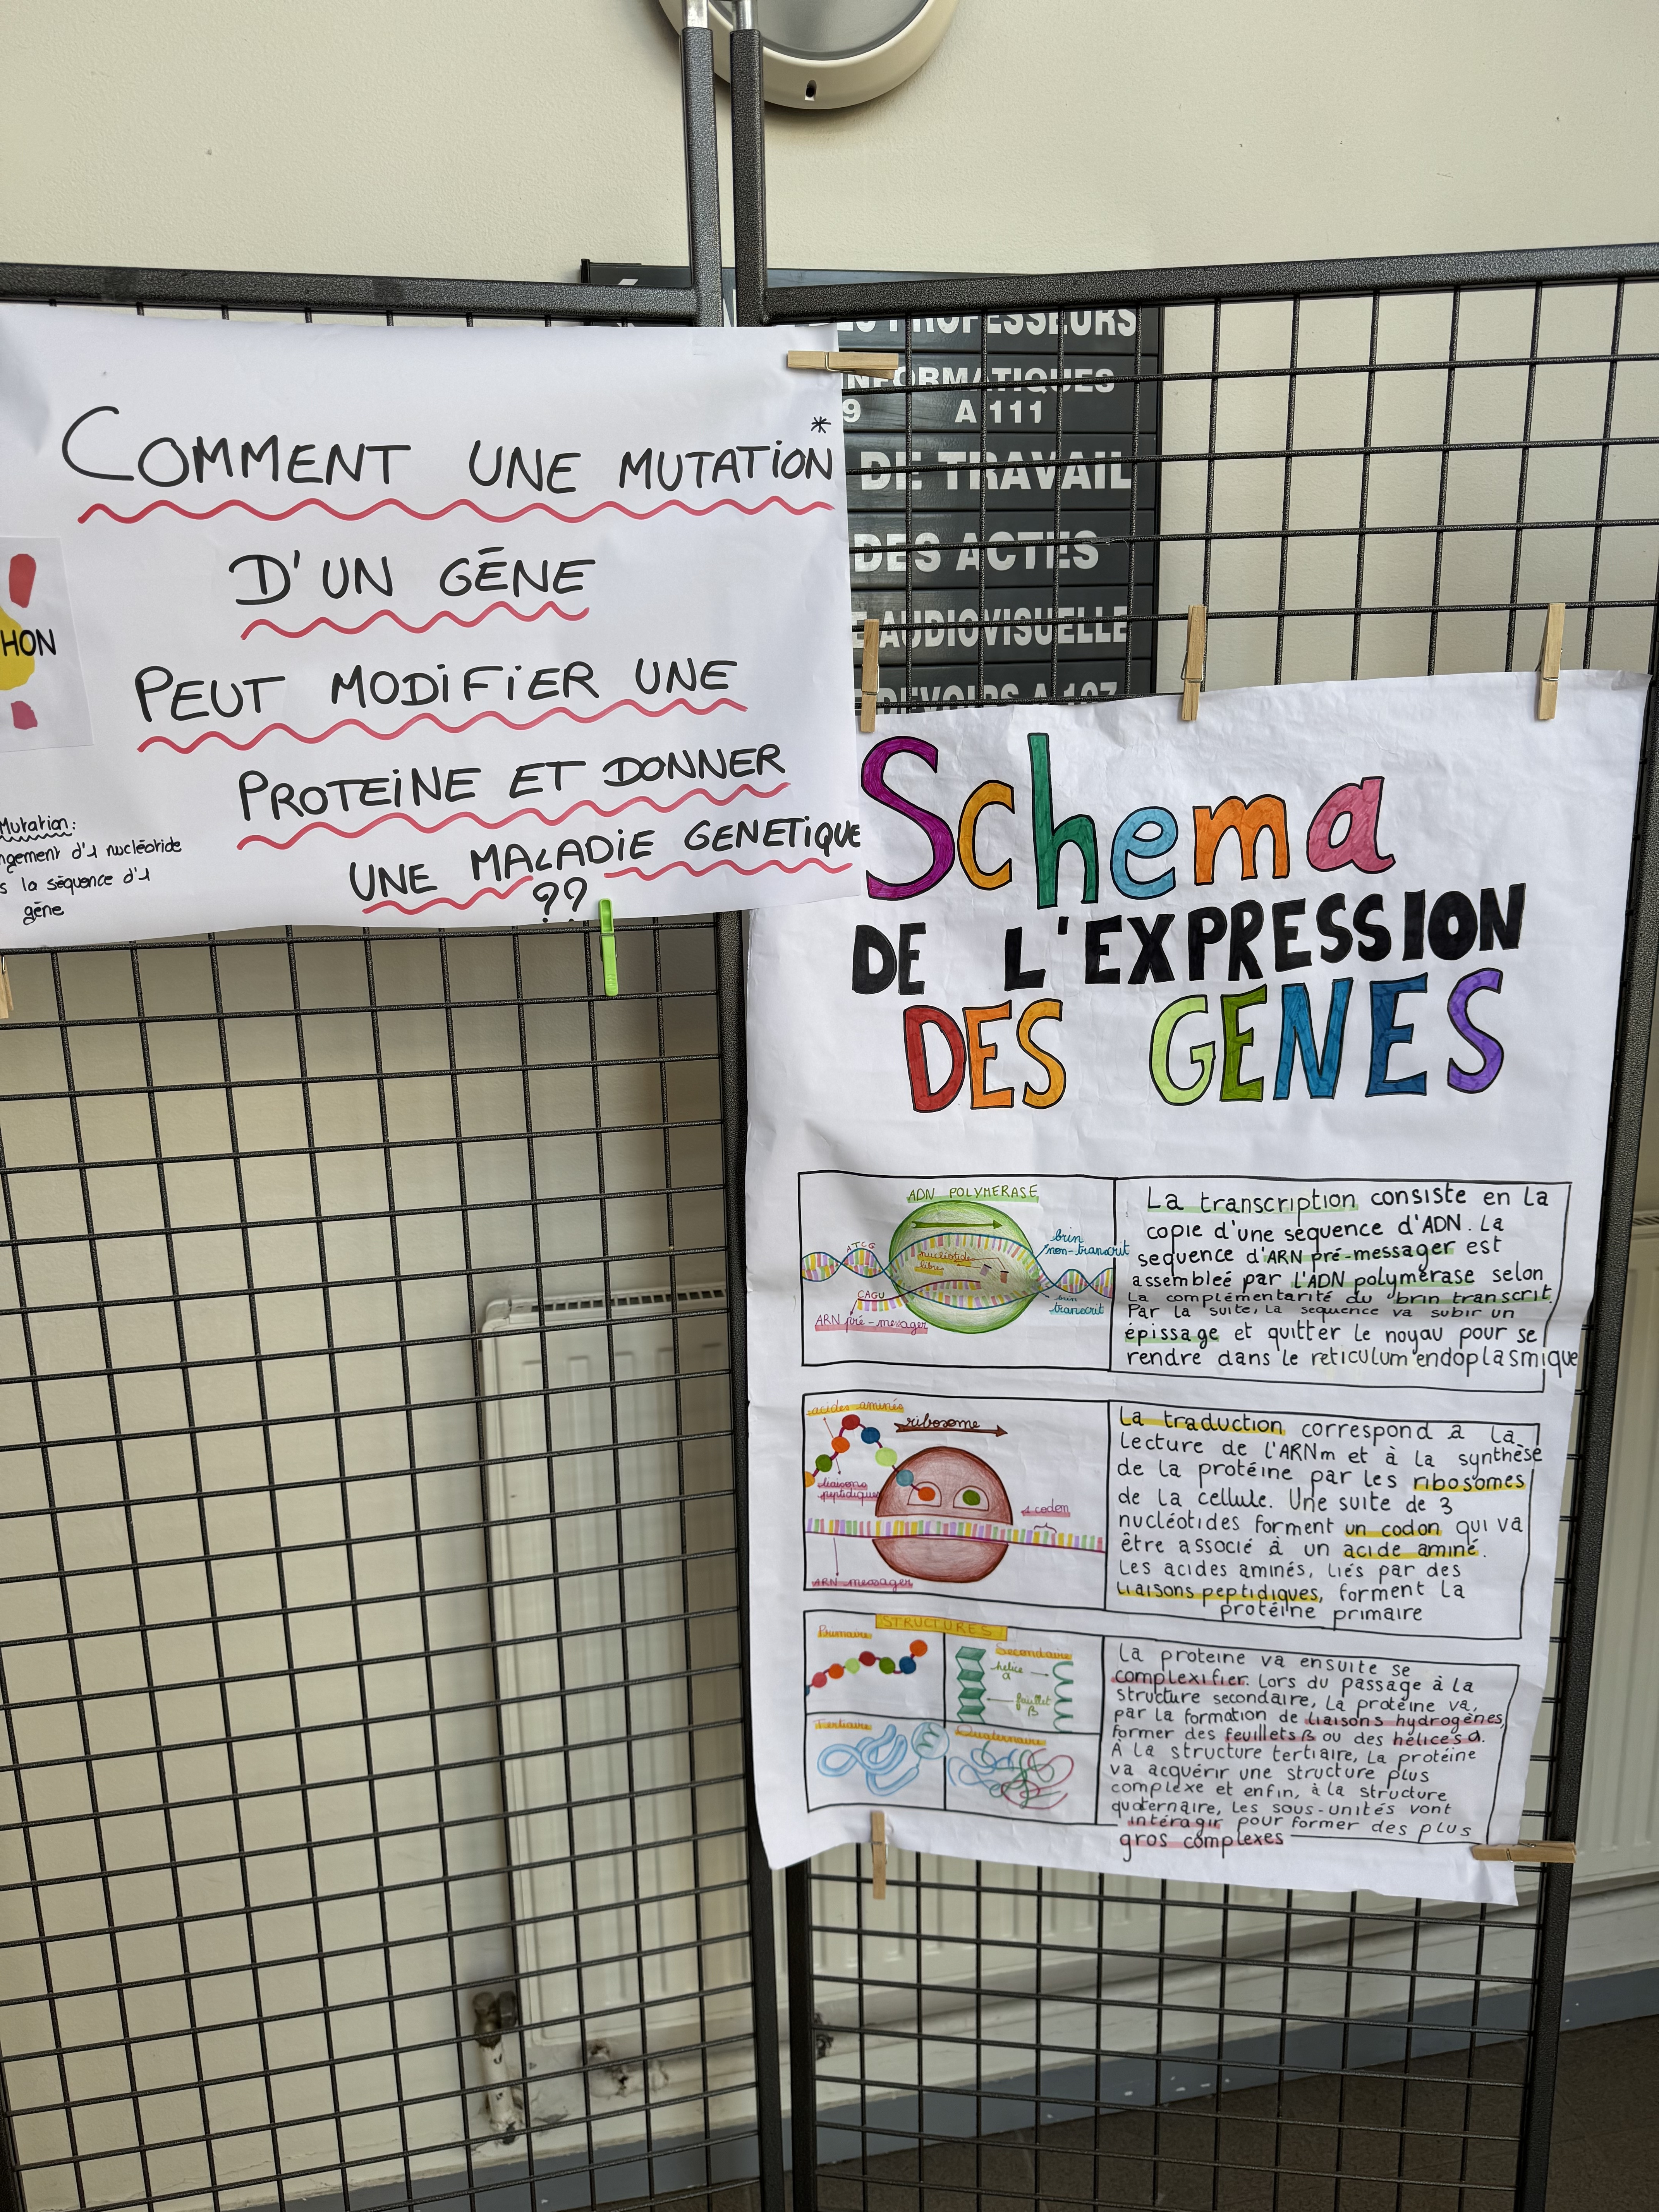 COMMENT UNE MUTATION*
D'UN GÈNE
PEUT MODIFIER UNE
PROTEINE ET DONNER
UNE MALADIE GENETIQUE
??
HON
Mutation:
ngement d'1 nucléotide
s la séquence d'1
gène
INFORMATIQUES
9 A 111
DE TRAVAIL
DES ACTES
E AUDIOVISUELLE
Schema
DE L'EXPRESSION
DES GENES
ADN POLYMERASE
ATCG
nucléotide
libre
brin
non-transcrit
CAGU
brin
transcrit
ARN pré-messager
La transcription consiste en la
copie d'une séquence d'ADN. La
sequence d'ARN pré-messager est
assembleé par l'ADN polymérase selon
la complémentarité du brin transcrit.
Par la suite, la sequence va subir un
épissage et quitter le noyau pour se
rendre dans le reticulum endoplasmique
acides aminés
ribosome
liaisons
peptidiques
1 codon
ARN messager
La traduction correspond à la
lecture de l'ARNm et à la synthèse
de la protéine par les ribosomes
de la cellule. Une suite de 3
nucléotides forment un codon qui va
être associé à un acide aminé.
Les acides aminés, liés par des
liaisons peptidiques, forment la
protéine primaire
STRUCTURES
Primaire
Secondaire
hélice
α
feuillet
β
Tertiaire
Quaternaire
La proteine va ensuite se
complexifier. Lors du passage à la
structure secondaire, la protéine va,
par la formation de liaisons hydrogènes,
former des feuillets β ou des hélices α.
À la structure tertiaire, la protéine
va acquérir une structure plus
complexe et enfin, à la structure
quaternaire, les sous-unités vont
intéragir pour former des plus
gros complexes